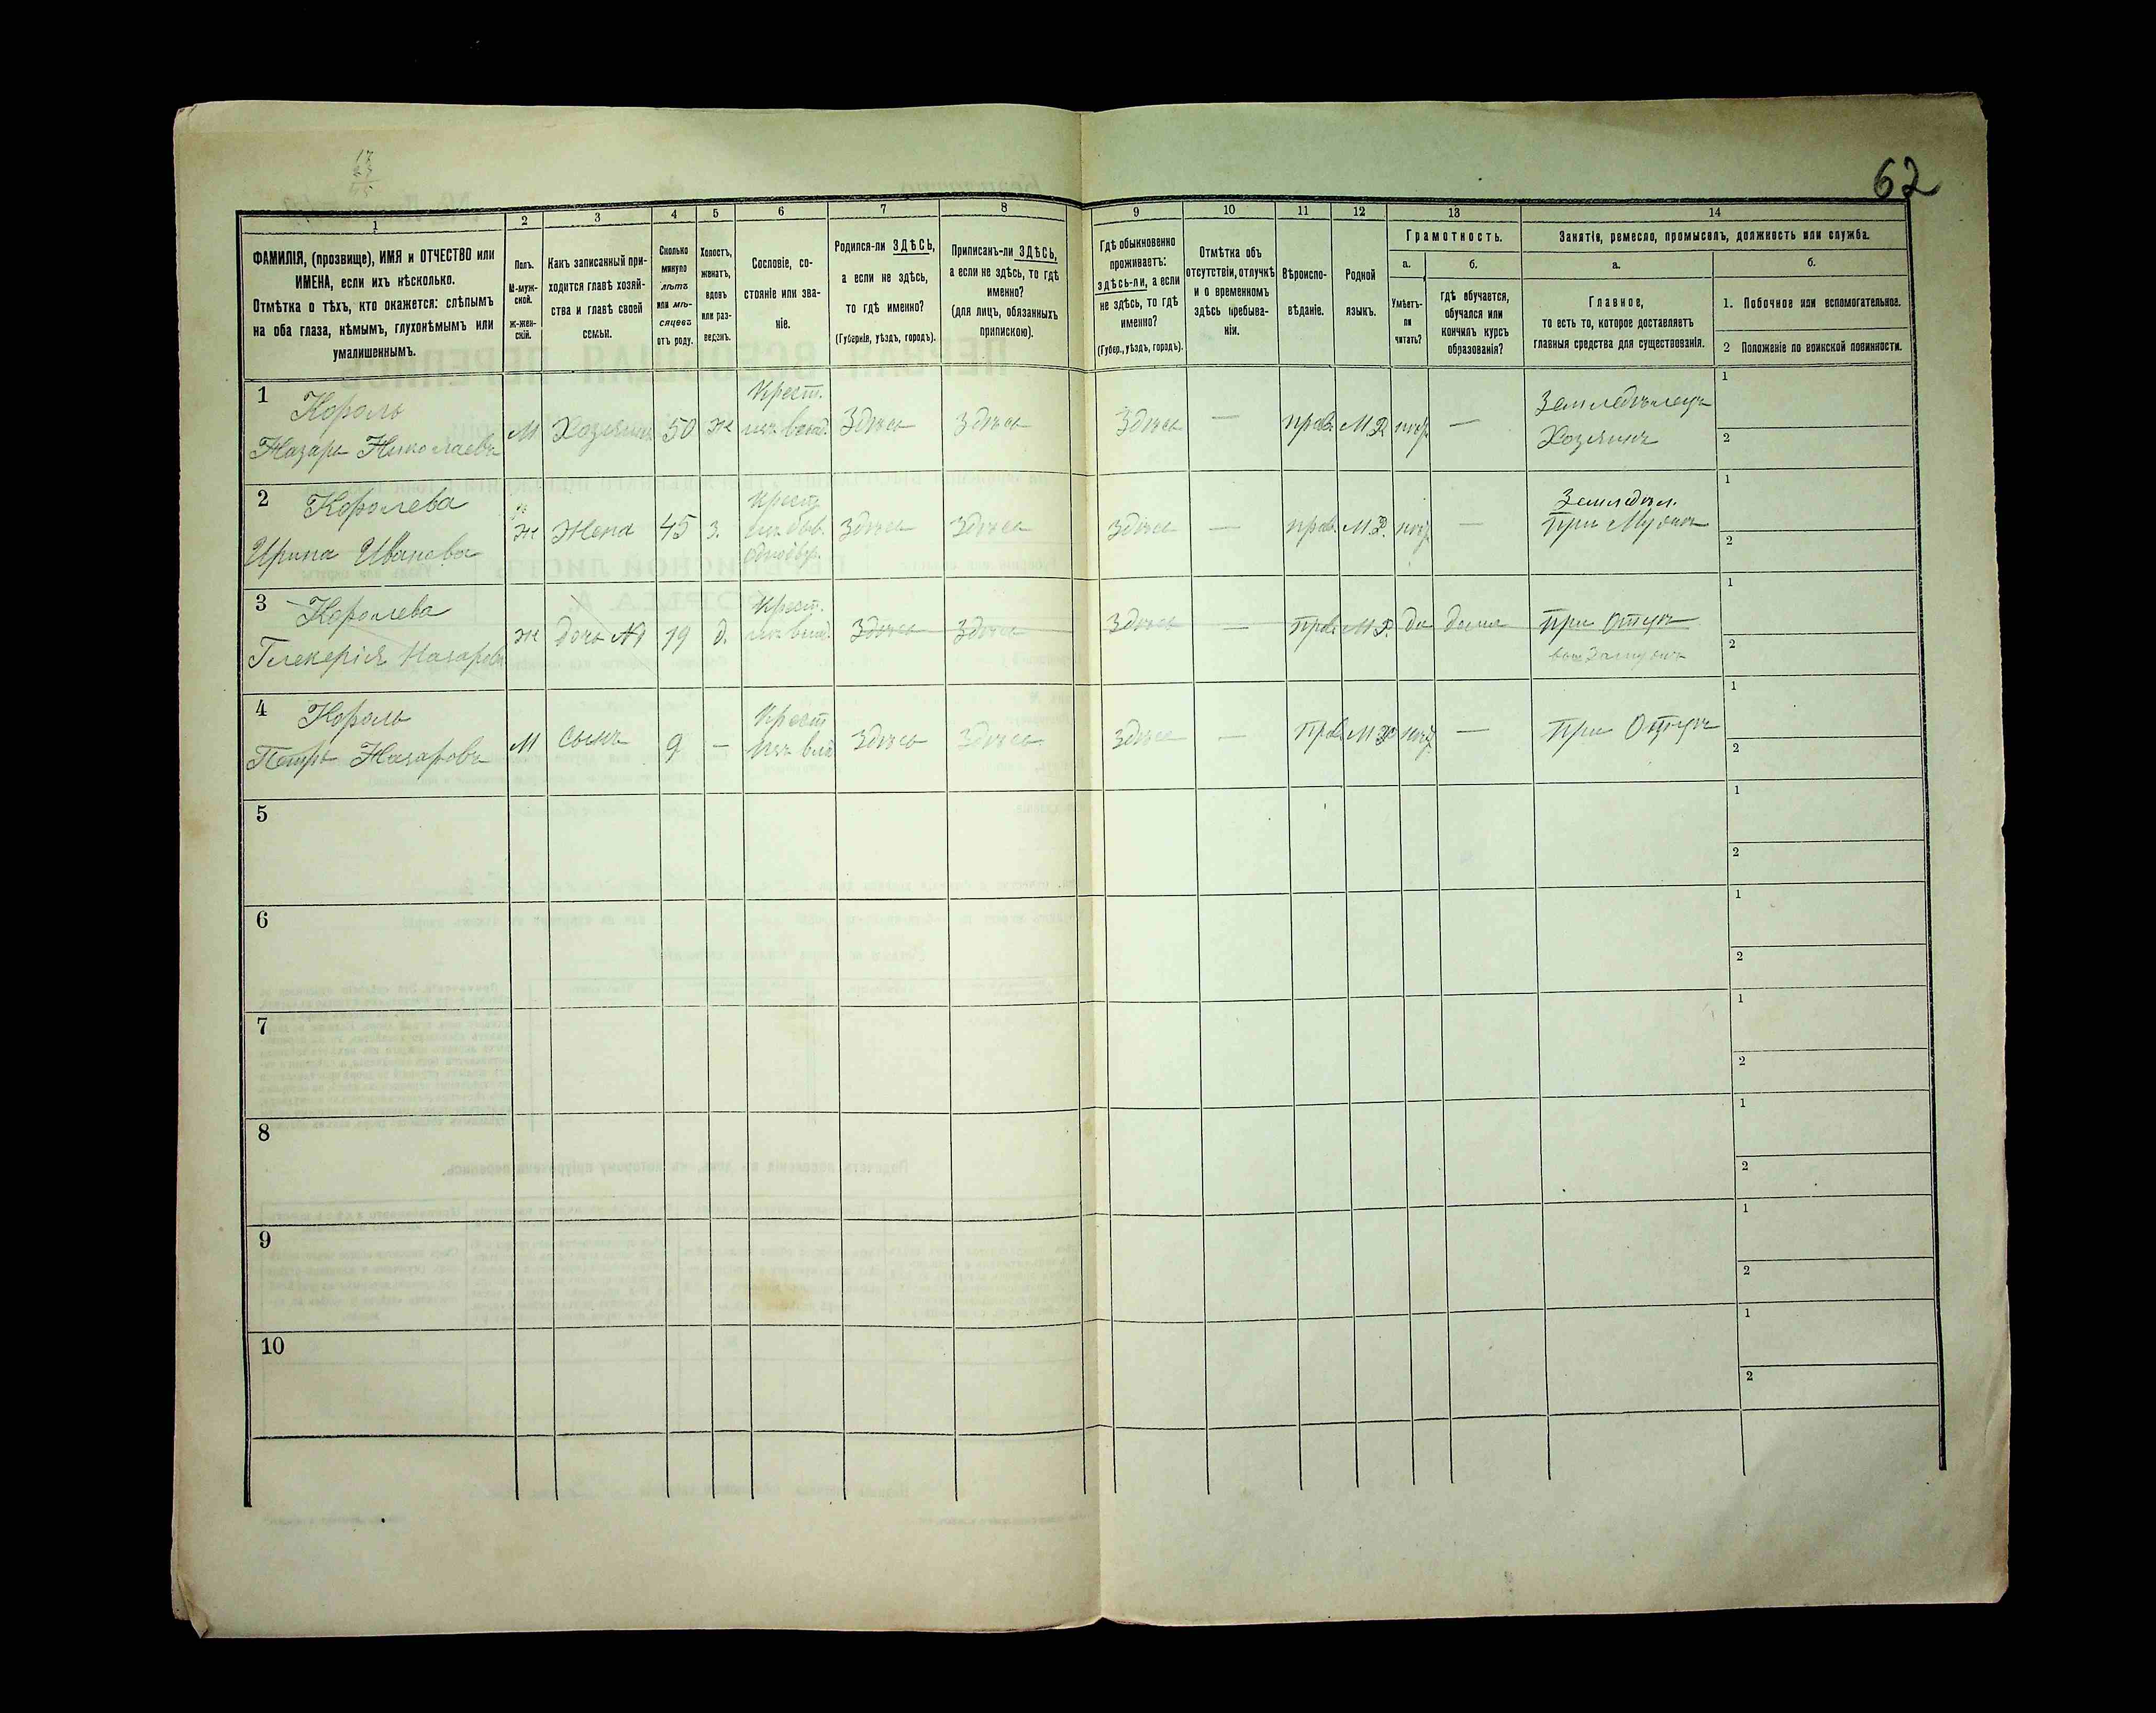 62
1 2 3 4 5 6 7 8 9 10 11 12 13 14
ФАМИЛІЯ, (прозвище), ИМЯ и ОТЧЕСТВО или
ИМЕНА, если ихъ нѣсколько.
Отмѣтка о тѣхъ, кто окажется: слѣпымъ
на оба глаза, нѣмымъ, глухонѣмымъ или
умалишеннымъ.
Полъ.
М-муж-
ской.
ж-жен-
скій.
Какъ записанный при-
ходится главѣ хозяй-
ства и главѣ своей
семьи.
Сколько
минуло
лѣтъ
или мѣ-
сяцевъ
отъ роду.
Холостъ,
женатъ,
вдовъ
или раз-
веденъ.
Сословіе, со-
стояніе или зва-
ніе.
Родился-ли ЗДѢСЬ,
а если не здѣсь,
то гдѣ именно?
(Губернія, уѣздъ, городъ).
Приписанъ-ли ЗДѢСЬ,
а если не здѣсь, то гдѣ
именно?
(для лицъ, обязанныхъ
припискою).
Гдѣ обыкновенно
проживаетъ:
здѣсь-ли, а если
не здѣсь, то гдѣ
именно?
(Губер., уѣздъ, городъ).
Отмѣтка объ
отсутствіи, отлучкѣ
и о временномъ
здѣсь пребыва-
ніи.
Вѣроиспо-
вѣданіе.
Родной
языкъ.
Грамотность.
а.
Умѣетъ-
ли
читать?
б.
гдѣ обучается,
обучался или
кончилъ курсъ
образованія?
Занятіе, ремесло, промыселъ, должность или служба.
а.
Главное,
то есть то, которое доставляетъ
главныя средства для существованія.
б.
1. Побочное или вспомогательное.
2 Положеніе по воинской повинности.
1 Король
Назаръ Николаевъ
М Хозяинъ 50 ж
Крест.
изъ влад.
Здѣсь Здѣсь Здѣсь — прав. М.Р. негр. —
Земледѣлецъ
Хозяинъ
1
2
2 Королева
Ирина Иванова
ж Жена 45 з.
Крест
изъ быв.
однодвр.
Здѣсь Здѣсь Здѣсь — прав. М.Р. негр. —
Земледѣл.
при Мужѣ
1
2
3 Королева
Гликерія Назарова
ж дочь №1 19 д.
Крест.
изъ влад.
Здѣсь Здѣсь Здѣсь — прав. М.Р. да дома
при Отцѣ
1
2
4 Король
Петръ Назаровъ
М сынъ 9 —
Крест
изъ вла
Здѣсь Здѣсь Здѣсь — прав. М.Р. негр. —
При Отцѣ
1
2
5
1
2
6
1
2
7
1
2
8
1
2
9
1
2
10
1
2